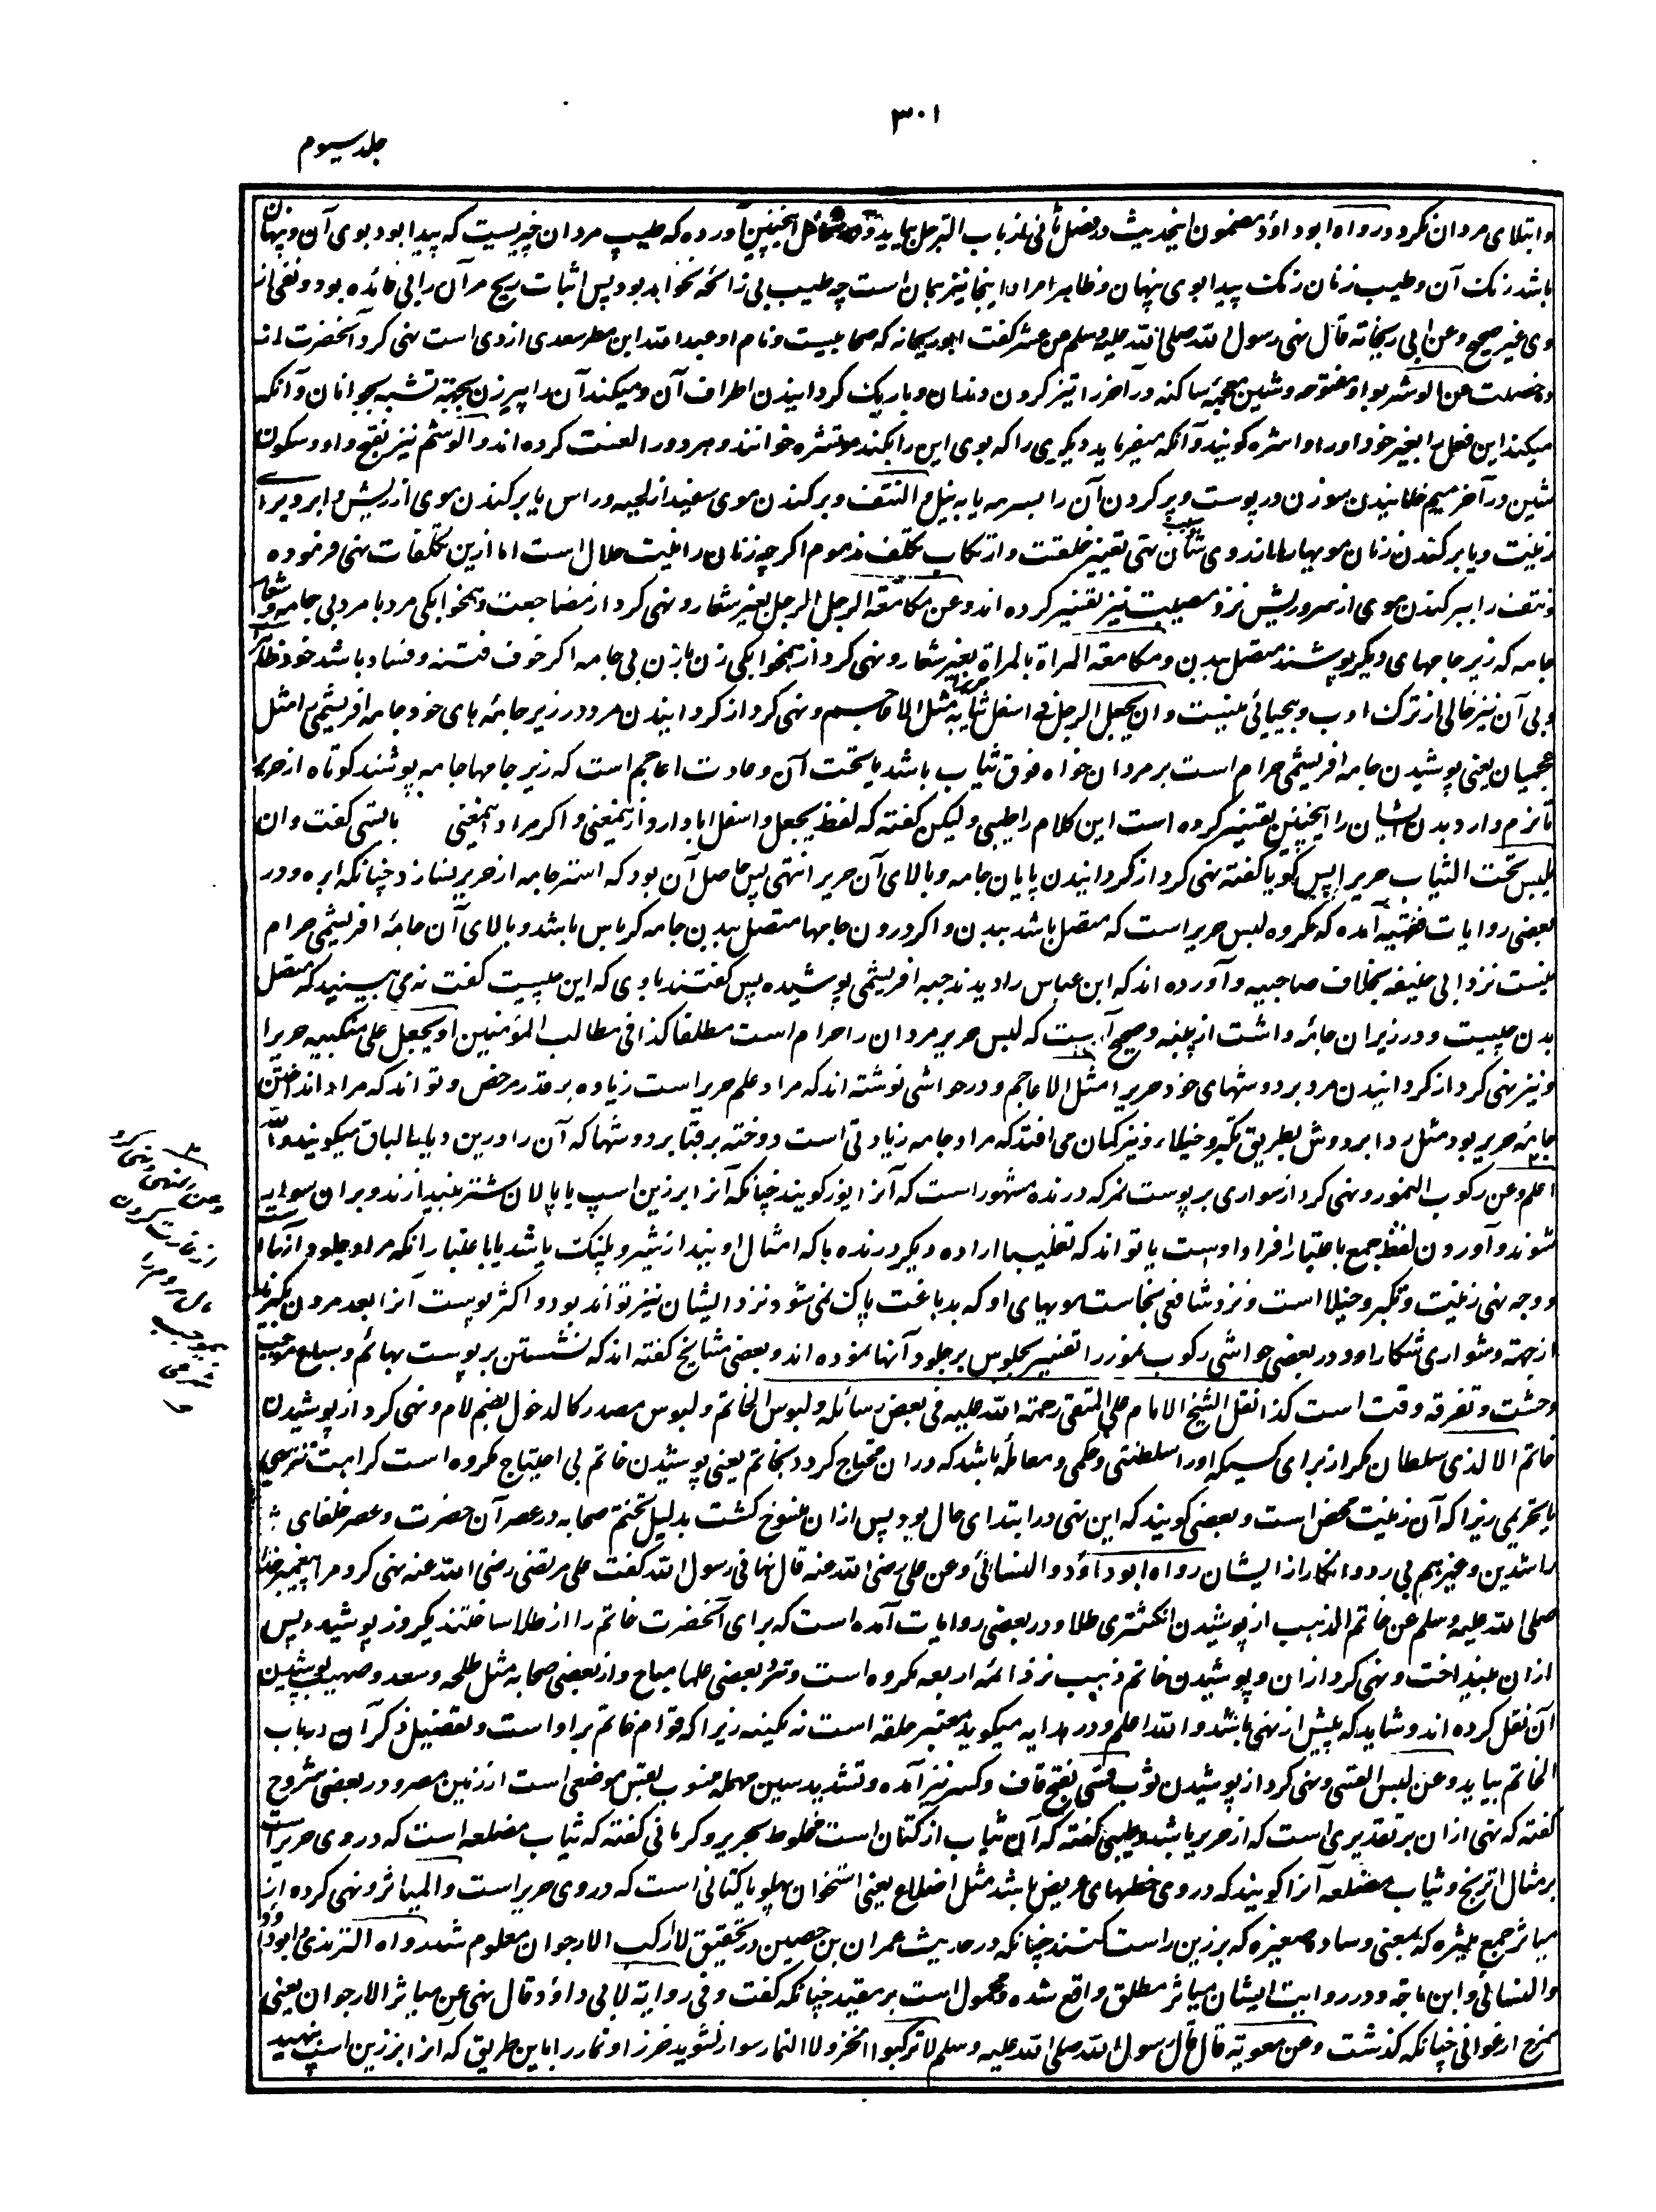 ۳۰۱
جلد سیوم
وابتلای مردان نکرد و رواه ابو داؤد مضمون اینحدیث در فصل ثانی از باب الترجل بیاید و در شمائل اینچنین آورده که طیب مردان چیزیست که پیدا بود بوی آن و پنهان
باشد رنگ آن و طیب زنان رنگ پیدا بوی پنهان و ظاهرا مراد اینجا نیز همان است چه طیب بی رائحه نخواهد بود پس اثبات ریح مر آن را بی فائده بود و نفی از
وی غیر صحیح و عن ابی ریحانة قال نهی رسول الله صلی الله علیه وسلم عن عشر گفت ابو ریحانه که صحابیست و نام او عبد الله ابن مطر سعدی ازدی است نهی کرد آنحضرت از
ده خصلت عن الوشر بواو مفتوحه و شین معجمه ساکنه در آخر را تیز کردن دندان و باریک گردانیدن اطراف آن و میکند آن را پیر زن بجهة تشبه بجوانان و آنکه
میکند این فعل را بغیر خود او را واشره گویند و آنکه میفرماید دیگری را که بوی این را بکند موتشره خوانند و هر دو را لعنت کرده اند و الوشم نیز بفتح واو و سکون
شین در آخر میم خلانیدن سوزن در پوست و پر کردن آن را بسرمه یا به نیل و النتف و برکندن موی سفید از لحیه و راس یا برکندن موی از ریش و ابرو برای
زینت و یا برکندن زنان مویها را از روی شان سبب نهی تغییر خلقت و ارتکاب تکلف مذموم اگر چه زنان را زینت حلال است اما ازین تکلفات نهی فرموده
و نتف را ببر کندن موی از سر و ریش نزد مصیبت نیز تفسیر کرده اند و عن مکامعة الرجل الرجل بغیر شعار و نهی کرد از مضاجعت و همخوابگی مرد با مرد بی جامه و شعار
جامه که زیر جامهای دیگر پوشند متصل ببدن و مکامعة المرأة بالمرأة بغیر شعار و نهی کرد از همخوابگی زن با زن بی جامه اگر خوف فتنه و فساد باشد خود ظاهر
و بی آن نیز خالی از ترک ادب و بیحیائی نیست و ان یجعل الرجل فی اسفل ثیابه حریرا مثل الاعاجم و نهی کرد از گردانیدن مرد در زیر جامه های خود جامه افریشمی مثل
عجمیان یعنی پوشیدن جامه افریشمی حرام است بر مردان خواه فوق ثیاب باشد یا تحت آن و عادت اعاجم است که زیر جامها جامه پوشند کوتاه از حریر
تا نرم دارد بدن ایشان را اینچنین تفسیر کرده است این کلام را طیبی ولیکن گفته که لفظ یجعل و اسفل ابا دارد از ینمعنی و اگر مراد اینمعنی بایستی گفت و ان
یلبس تحت الثیاب حریرا پس گویا گفته نهی کرد از گردانیدن پایان جامه و بالای آن حریر انتهی پس حاصل آن بود که استر جامه از حریر بسازد چنانکه ابره و در
بعضی روایات فقهیه آمده که مکروه لبس حریر است که متصل باشد ببدن و اگر درون جامها متصل ببدن جامه کرباس باشد و بالای آن جامه افریشمی حرام
نیست نزد ابی حنیفه بخلاف صاحبیه و آورده اند که ابن عباس را دیدند جبه افریشمی پوشیده پس گفتند با وی که این چیست گفت نمی بینید که متصل
بدن چیست و در زیر آن جامه داشت از پنبه و صحیح آنست که لبس حریر مردان را حرام است مطلقا کذا فی مطالب المؤمنین او یجعل علی منکبیه حریرا
و نیز نهی کرد از گردانیدن مرد بر دوشهای خود حریر را مثل الاعاجم و در حواشی نوشته اند که مراد علم حریر است زیاده بر قدر مرخص و تواند که مراد انداختن
جامه حریر بود مثل ردا بر دوش بطریق تکبر و خیلاء و نیز گمان می افتد که مراد جامه زیادتی است دوخته بر قبا بر دوشها که آن را درین دیار لباق میگویند والله
اعلم وعن رکوب النمور و نهی کرد از سواری بر پوست نمر که درنده مشهور است که آنرا یوز گویند چنانکه آنرا بر زین اسپ یا پالان شتر بیندازند و بران سوار
شوند و آوردن لفظ جمع باعتبار افراد اوست یا تواند که تغلیبا اراده دیگر درنده ها که امثال او یند از شیر و پلنگ باشد یا باعتبار آنکه مراد جلود آنهاست
و وجه نهی زینت و تکبر و خیلا است و نزد شافعی نجاست مویهای او که بدباغت پاک نمی شود نزد ایشان نیز تواند بود و اکثر پوست آنرا بعد مردن بگیرند
از جهة دشواری شکار او و در بعضی حواشی رکوب نمور را تفسیر بجلوس بر جلود آنها نموده اند و بعضی مشایخ گفته اند که نشستن بر پوست بهائم و سباع موجب
وحشت و تفرقه وقت است کذا نقل الشیخ الامام علی المتقی رحمة الله علیه فی بعض رسائله و لبوس الخاتم و لبوس مصدر کالدخول بضم لام و نهی کرد از پوشیدن
خاتم الا لذی سلطان مگر از برای کسیکه او را سلطنتی و حکمی و معامله باشد که در ان محتاج گردد بخاتم یعنی پوشیدن خاتم بی احتیاج مکروه است کراهت تنزیهی
یا تحریمی زیرا که آن زینت محض است و بعضی گویند که این نهی در ابتدای حال بود پس ازان منسوخ گشت بدلیل تختم صحابه در عصر آن حضرت و عصر خلفای
راشدین و غیرهم بی رد و انکار از ایشان رواه ابو داؤد والنسائی وعن علی رضی الله عنه قال نهانی رسول الله گفت علی مرتضی رضی الله عنه نهی کرد مرا پیغمبر خدا
صلی الله علیه وسلم عن خاتم الذهب از پوشیدن انگشتری طلا و در بعضی روایات آمده است که برای آنحضرت خاتم را از طلا ساختند یکروز پوشید پس
ازان بینداخت و نهی کرد ازان و پوشیدن خاتم ذهب نزد ائمه اربعه مکروه است و نزد بعضی علما مباح و از بعضی صحابه مثل طلحه و سعد و صهیب پوشیدن
آن نقل کرده اند و شاید که پیش از نهی باشد والله اعلم و در هدایه میگوید معتبر حلقه است نه نگینه زیرا که قوام خاتم بر او است و تفصیل ذکر آن در باب
الخاتم بیاید وعن لبس القسی و نهی کرد از پوشیدن ثوب قسی بفتح قاف و کسر نیز آمده و تشدید سین مهمله منسوب بقس موضعی است از زمین مصر و در بعضی شروح
گفته که نهی ازان بر تقدیری است که از حریر باشد و طیبی گفته که آن ثیاب از کتان است مخلوط بحریر و کرمانی گفته که ثیاب مضلعه است که در وی حریر است
بر مثال اترنج و ثیاب مضلعه آنرا گویند که در وی خطهای عریض باشد مثل اضلاع یعنی استخوان پهلو یا کتانی است که در وی حریر است والمیاثر و نهی کرده از
میاثر جمع میثره که بمعنی وساده صغیره که بر زین راست کنند چنانکه در حدیث عمران بن حصین در تحقیق لا ارکب الارجوان معلوم شد رواه الترمذی و ابو داؤد
والنسائی و ابن ماجة و در روایت ایشان میاثر مطلق واقع شده و محمول است بر مقید چنانکه گفت و فی روایة لابی داؤد قال نهی عن میاثر الارجوان یعنی
سرخ ارغوانی چنانکه گذشت وعن معویة قال قال رسول الله صلی الله علیه وسلم لا ترکبوا الخز ولا النمار سوار نشوید خز را و نمار را باین طریق که آنرا بر زین اسپ نهید
وعن النهبی و نهی کرد
از غارت کردن